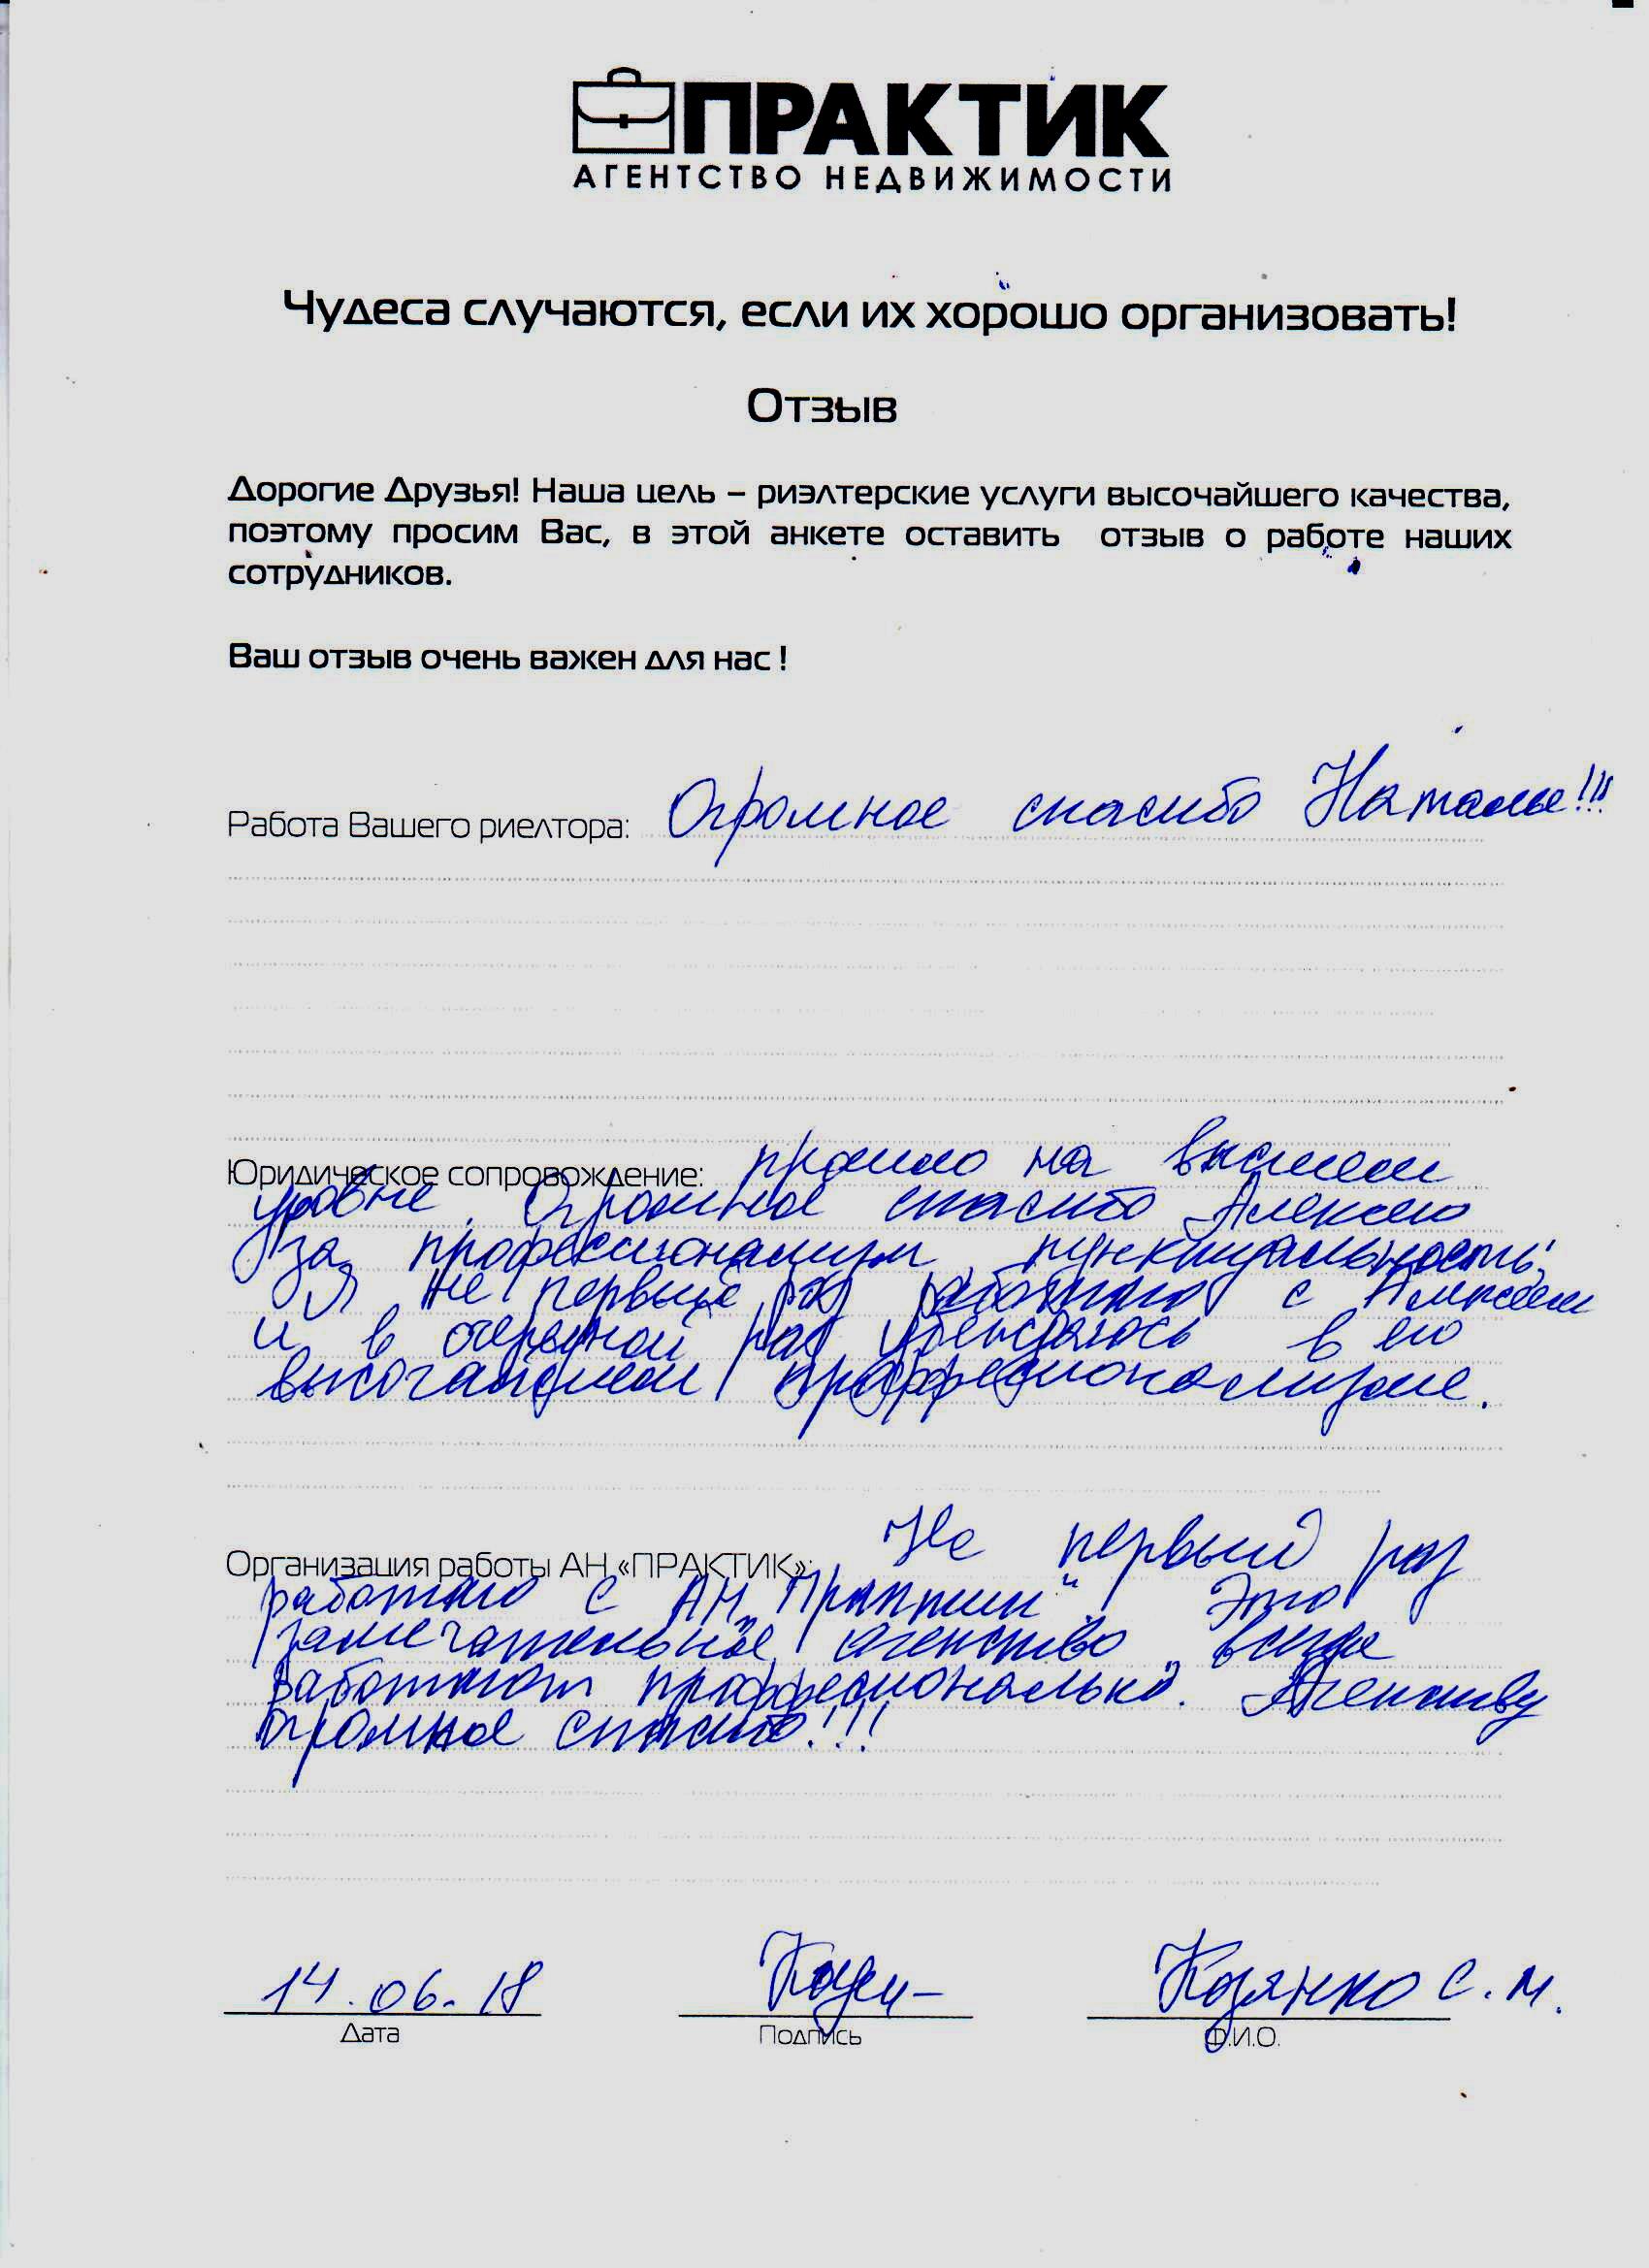 ПРАКТИК
АГЕНТСТВО НЕДВИЖИМОСТИ
Чудеса случаются, если их хорошо организовать!
Отзыв
Дорогие Друзья! Наша цель – риэлтерские услуги высочайшего качества,
поэтому просим Вас, в этой анкете оставить отзыв о работе наших
сотрудников.
Ваш отзыв очень важен для нас !
Работа Вашего риелтора: Огромное спасибо Наталье!!!
Юридическое сопровождение: прошло на высшем
уровне. Огромное спасибо Алексею
за профессионализм, пунктуальность.
Я не первый раз работаю с Алексеем
и в очередной раз убеждаюсь в его
высочайшем профессионализме.
Организация работы АН «ПРАКТИК»: Не первый раз
работаю с АН „Практик“. Это
замечательное агенство, всегда
работают профессионально. Агенству
огромное спасибо!!!
14.06.18
Дата
Подпись
Козянко С.М.
Ф.И.О.